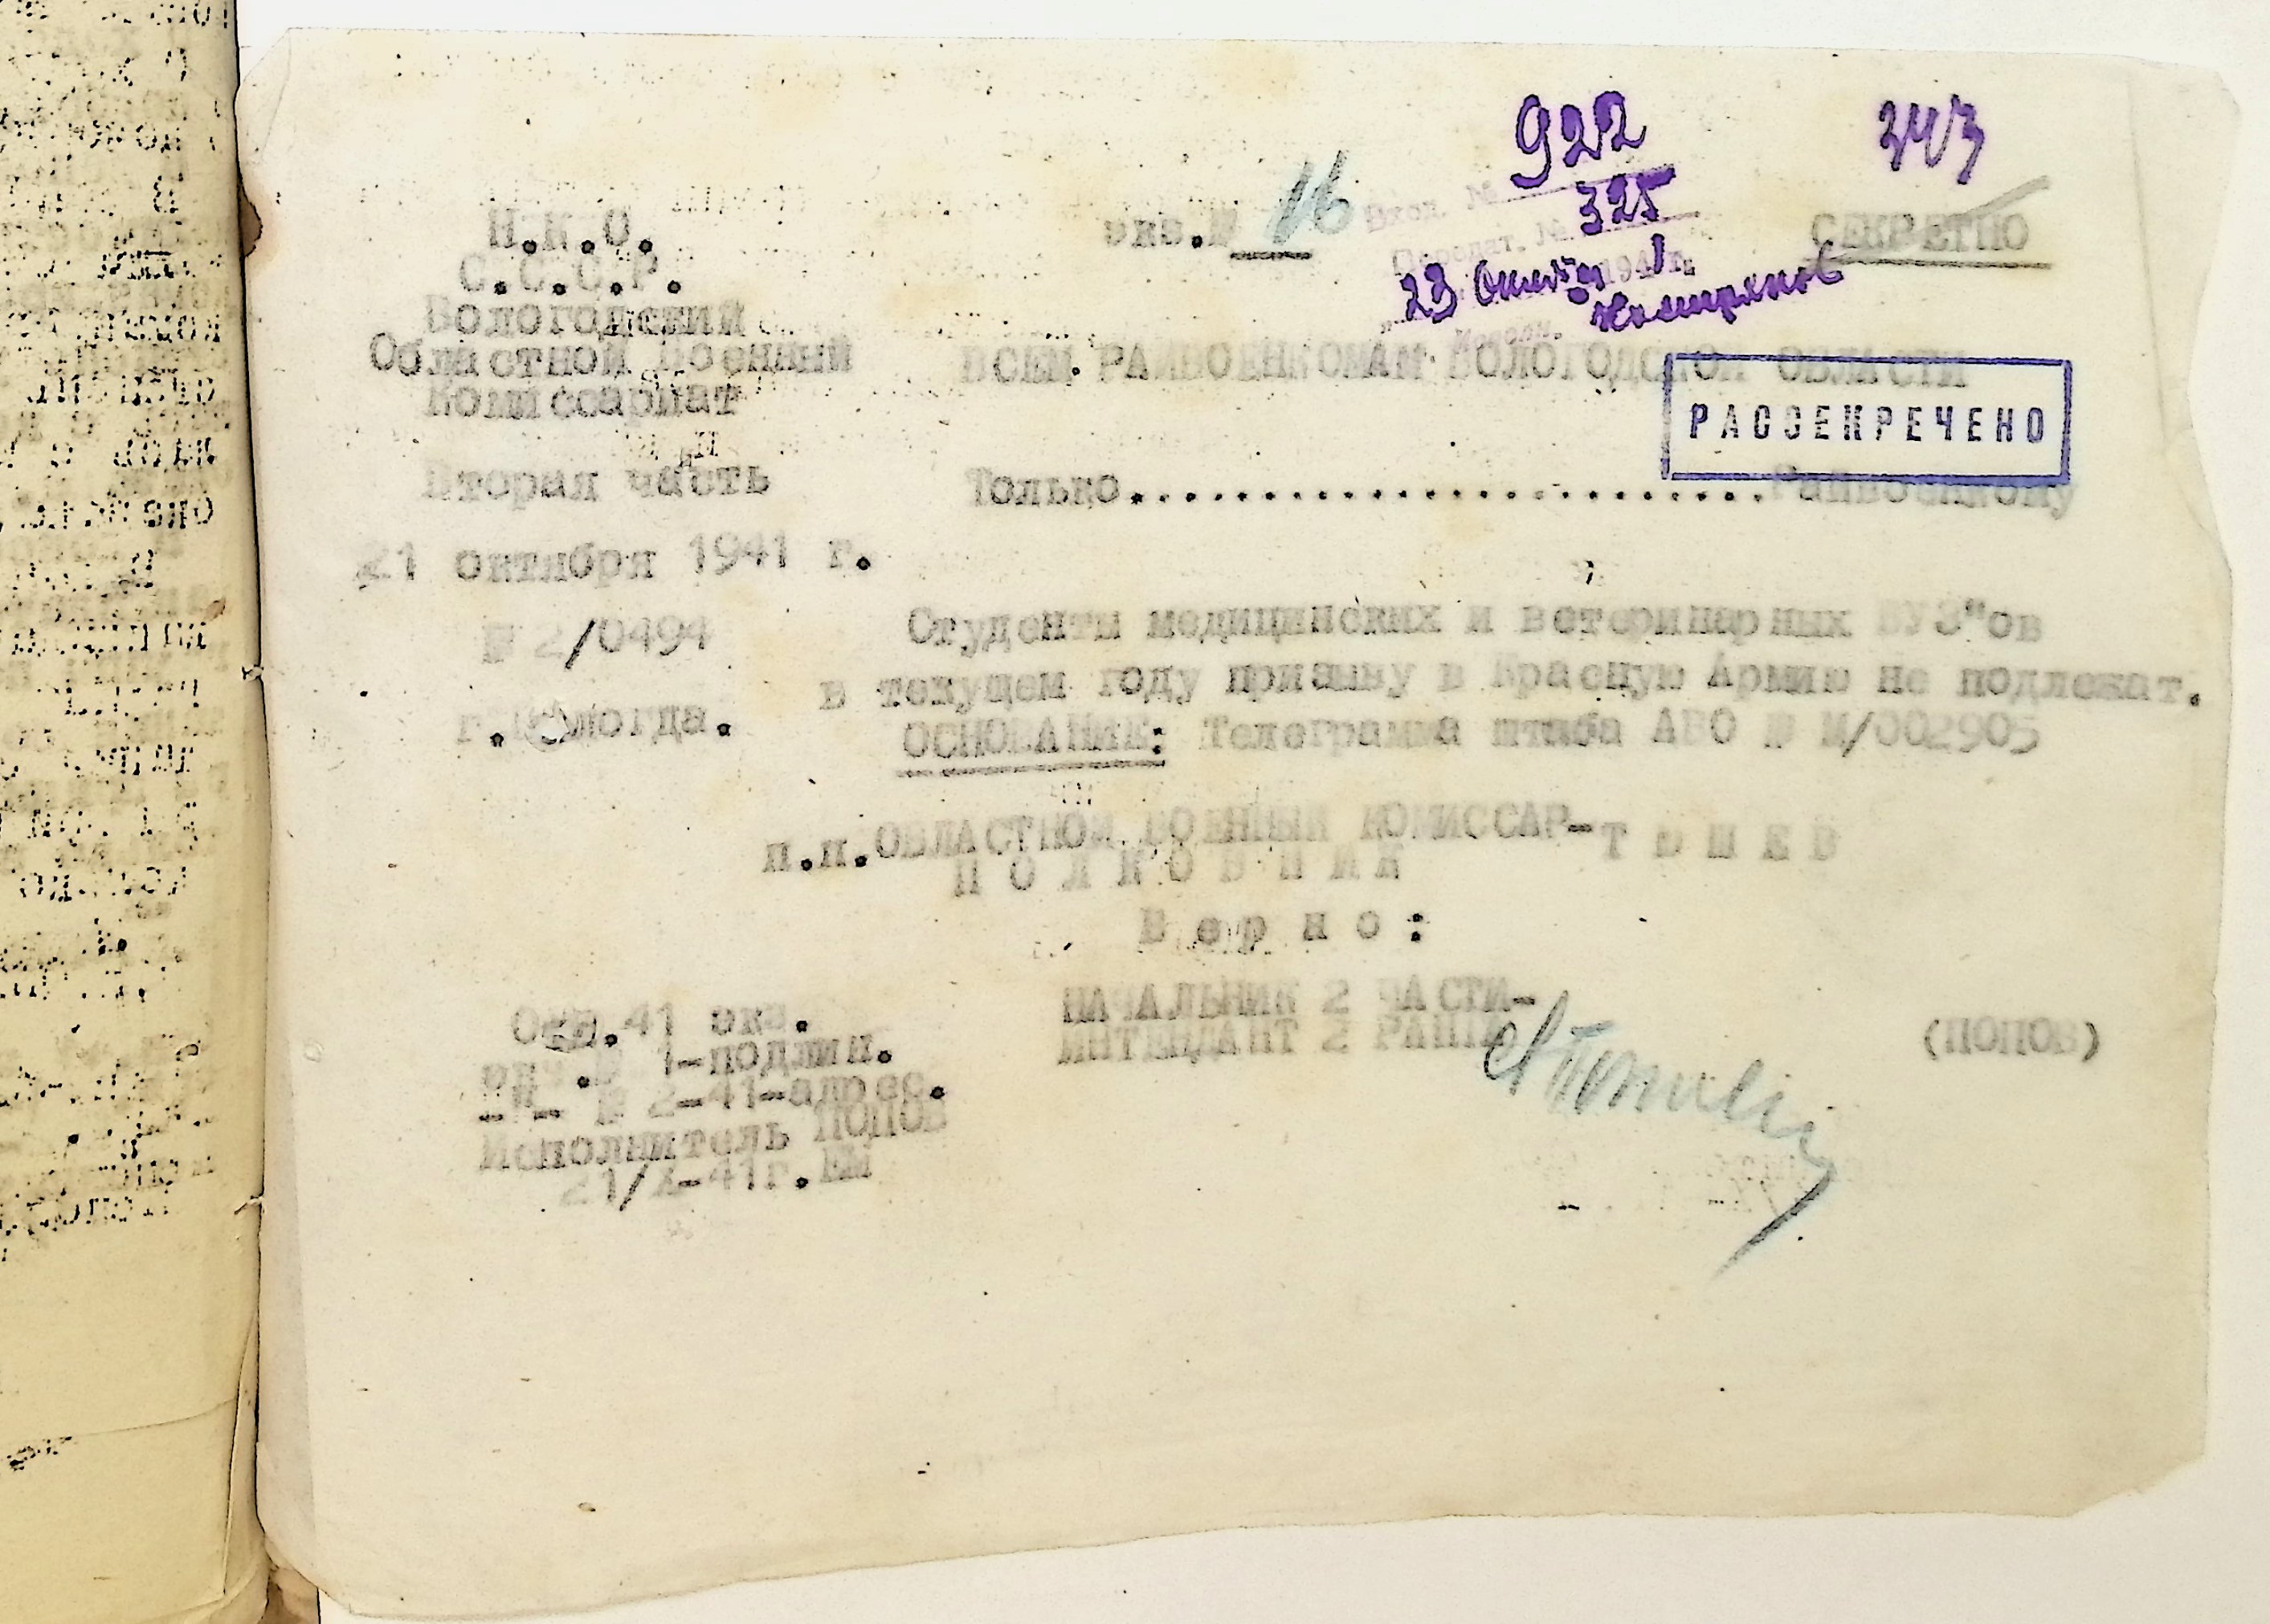 922
343
Н.К.О.
экз.№ 16
Вход. №
325
СЕКРЕТНО
С.С.С.Р.
23 октября 1941 г.
Вологодский
Областной Военный
ВСЕМ РАЙВОЕНКОМАМ ВОЛОГОДСКОЙ ОБЛАСТИ
Комиссариат
РАССЕКРЕЧЕНО
Вторая часть
Только..........................Райвоенкому
21 октября 1941 г.
№ 2/0494
Студенты медицинских и ветеринарных ВУЗ"ов
в текущем году призыву в Красную Армию не подлежат.
г.Вологда.
ОСНОВАНИЕ: Телеграмма штаба АВО № М/002905
п.п.ОБЛАСТНОЙ ВОЕННЫЙ КОМИССАР-
ПОЛКОВНИК
В е р н о :
НАЧАЛЬНИК 2 ЧАСТИ-
ИНТЕНДАНТ 2 РАНГА
(ПОПОВ)
Отп.41 экз.
экз.№ 1-подлин.
-"- № 2-41-адрес.
Исполнитель ПОПОВ
21/Х-41г.ЕМ